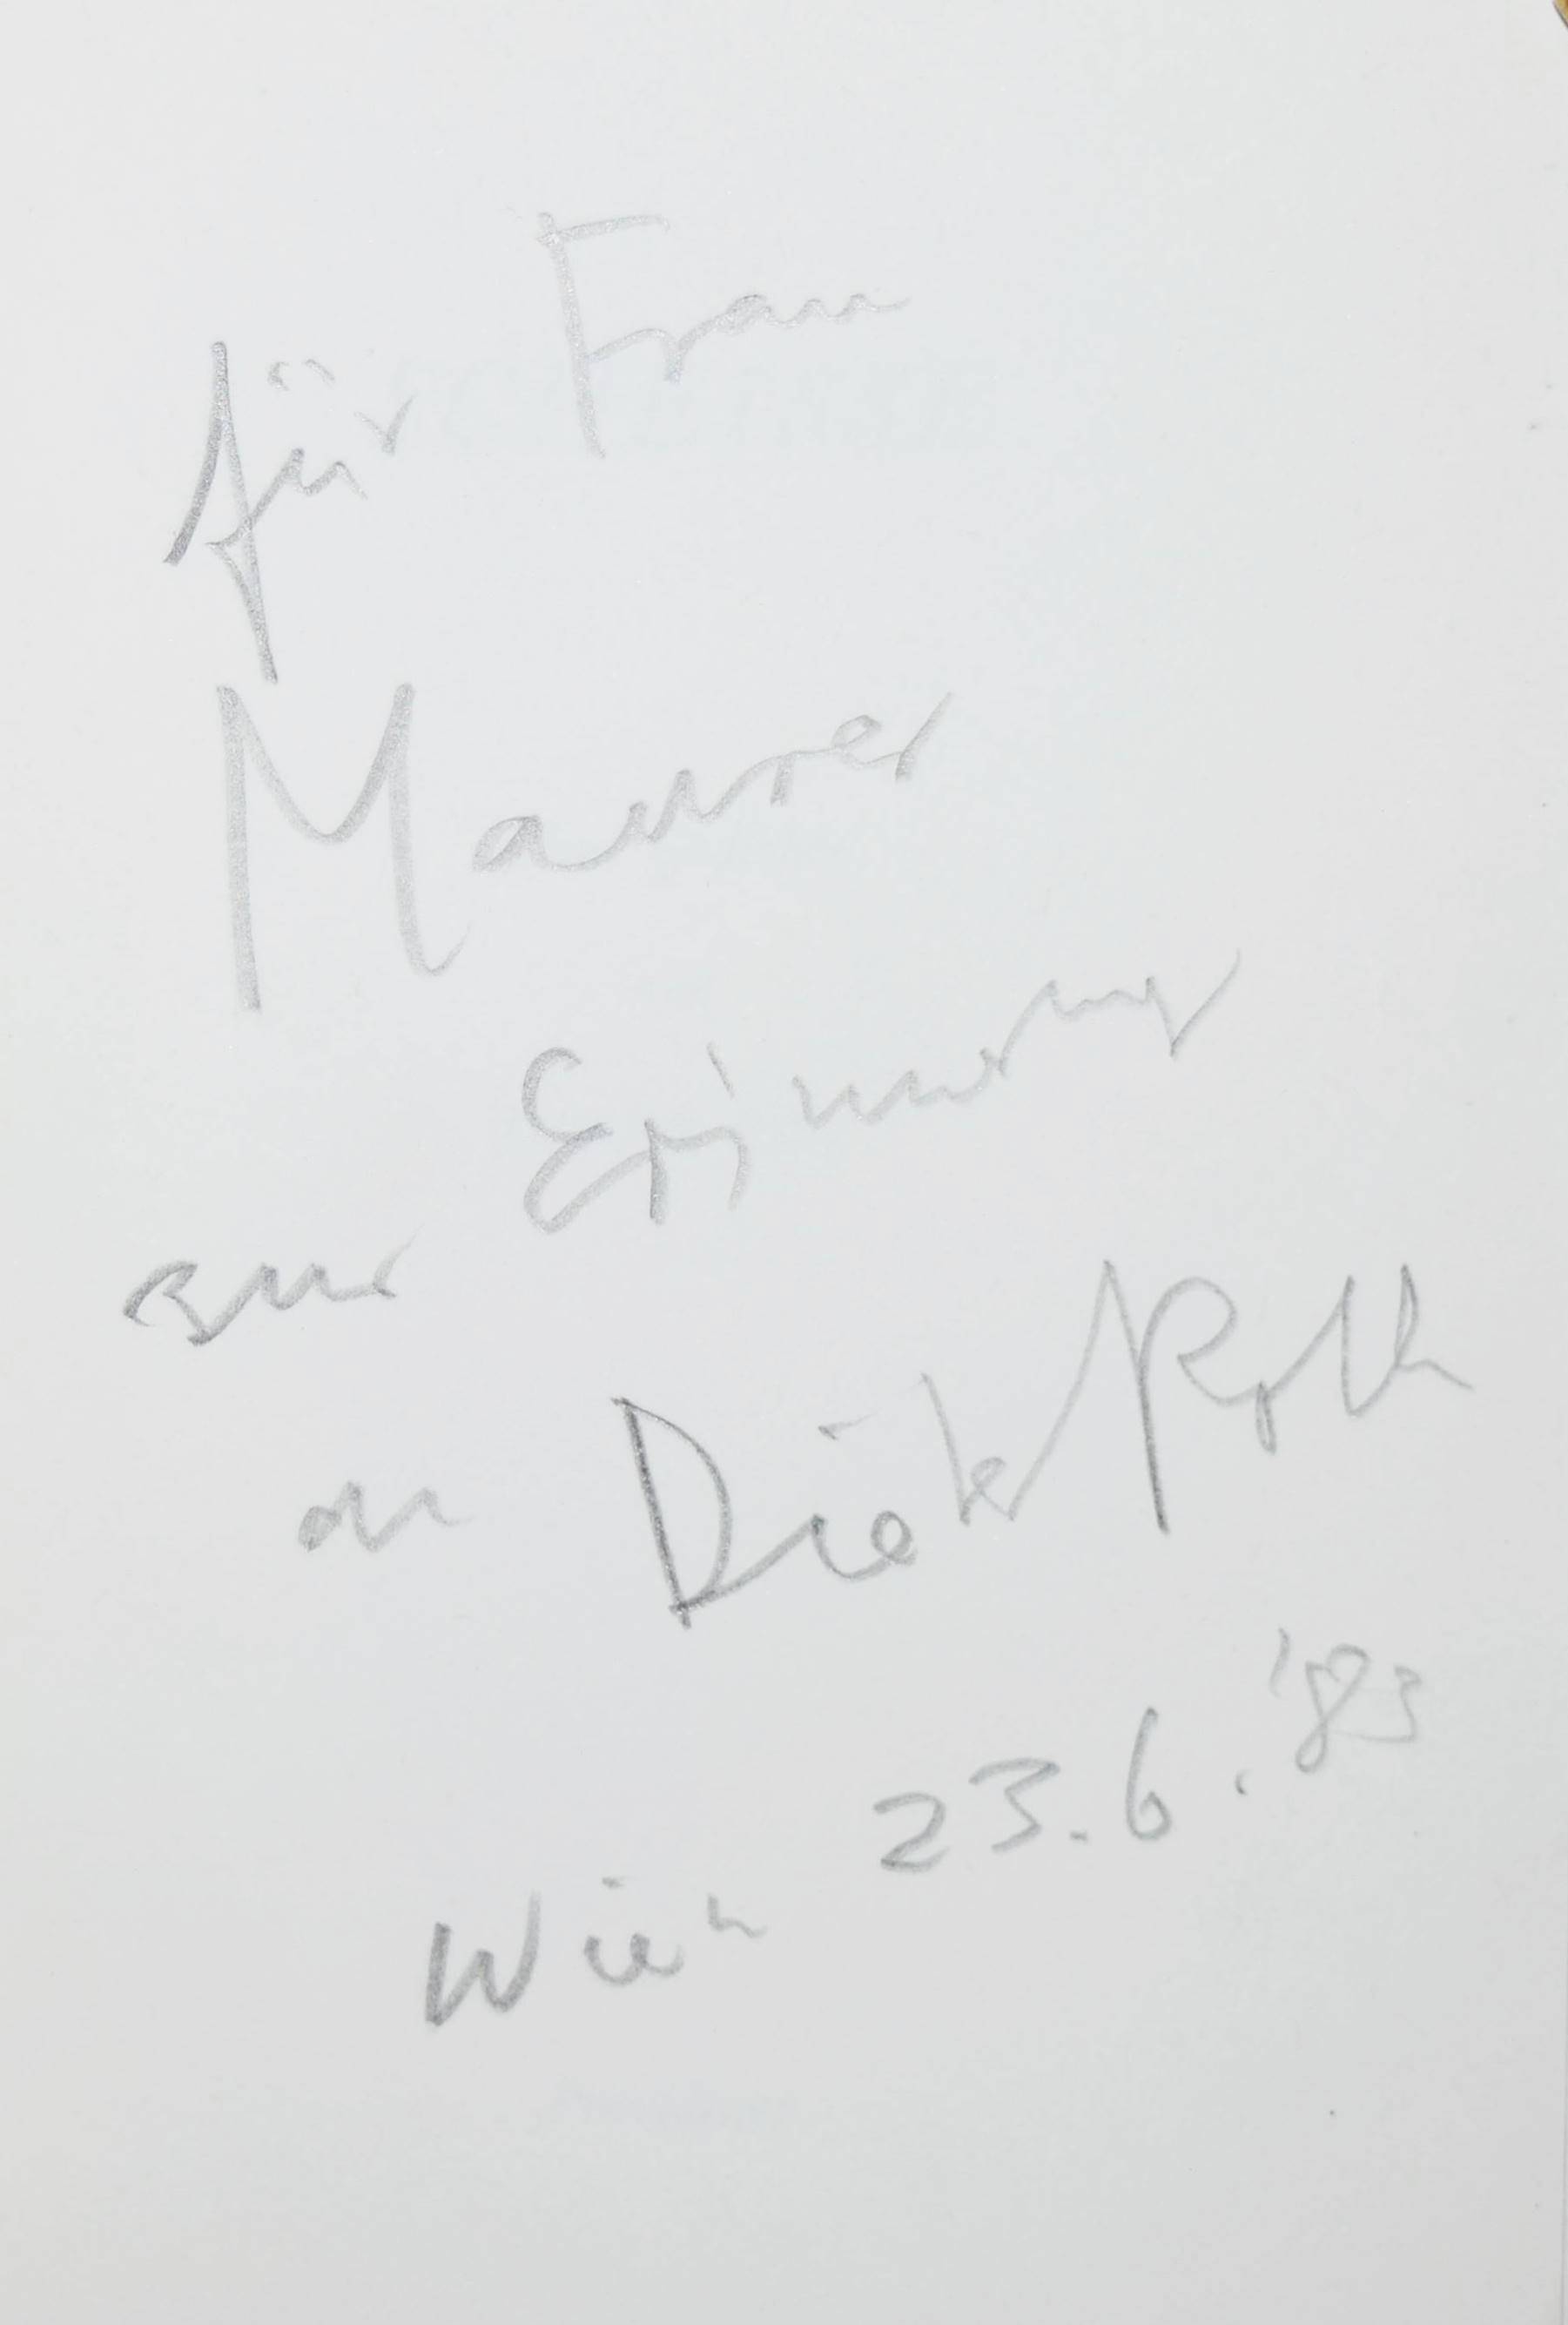 für Frau
Maurer
zur Erinnerung
an Dieter Roth
Wien 23.6.'83